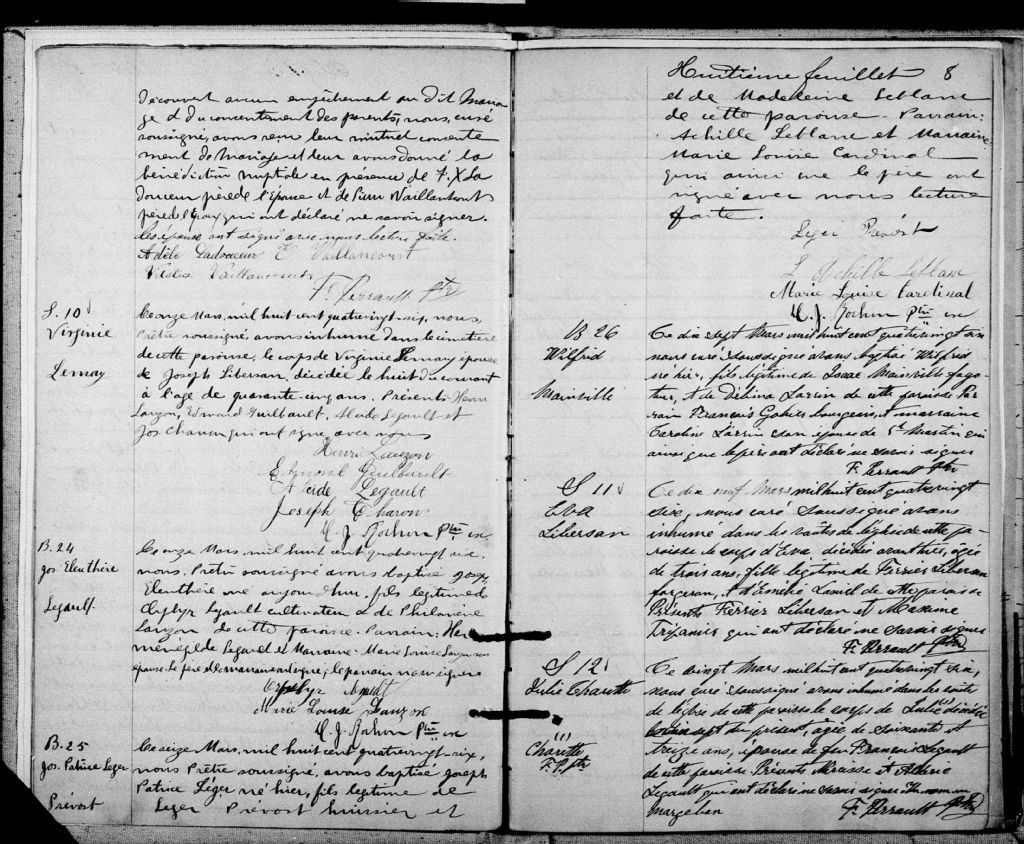 découvert aucun empêchement au dit maria
ge et du consentement des parents, nous, curé
soussigné, avons reçu leur mutuel consente
ment de mariage et leur avons donné la
bénédiction nuptiale en présence de F. X La
douceur père de l'épouse et de Vaillancourt
père de l'époux qui ont déclaré ne savoir signer.
Les épouse ont signé avec nous lecture faite.
Adèle Ladouceur E Vaillancourt
Vaillancourt
F. Perrault Ptre
S. 10
Virginie
Lemay
Ce onze Mars, mil huit cent quatrevingt-six, nous,
Prêtre soussigné, avons inhumé dans le cimetière
de cette paroisse, le corps de Virginie Lemay épouse
de Joseph Libersan, décédée le huit du courant
à l'âge de quarante-cinq ans. Présents: Henri
Lauzon, Edmond Guilbault, Legault et
Jos Charon qui ont signé avec nous
Henri Lauzon
Edmond Guilbault
Legault
Joseph Charon
J. Ptre
B. 24
Jos. Eleuthère
Legault
Ce onze Mars, mil huit cent quatrevingt six
nous, Prêtre soussigné avons baptisé Joseph
Eleuthère né aujourd'hui, fils légitime de
Legault cultivateur et de Philomène
Lauzon de cette paroisse. Parrain: Her
ménégilde Legault et Marraine: Marie Louise Lauzon son
épouse. Le père et la marraine ont signé, le parrain n'a su signer
Marie Louise Lauzon
J. Ptre
B. 25
Jos. Patrice Leger
Prévost
Ce seize Mars, mil huit cent quatrevingt-six,
nous Prêtre soussigné, avons baptisé Joseph
Patrice Léger né hier, fils légitime de
Léger Prévost huissier et
Huitième feuillet 8
et de Madeleine Leblanc
de cette paroisse. Parrain:
Achille Leblanc et Marraine
Marie Louise Cardinal
qui ainsi que le père ont
signé avec nous lecture
faite.
Léger Prévost
L. Achille Leblanc
Marie Louise Cardinal
J. Ptre
B 26
Wilfrid
Mainville
Ce dix sept Mars mil huit cent quatrevingt six
nous curé soussigné avons baptisé Wilfrid
né hier, fils légitime de Isaac Mainville
et de Délima Lazin de cette paroisse Par
rain François bourgeois, et marraine
Caroline son épouse de St Martin qui
ainsi que le père ont déclaré ne savoir signer
F. Perrault Ptre
S 11
Eva
Libersan
Ce dix neuf Mars mil huit cent quatrevingt
six, nous curé soussigné avons
inhumé dans les voûtes de l'église de cette pa-
roisse le corps d'Eva, décédée avant hier, âgée
de trois ans, fille légitime de Ferrier Libersan
forgeron, et d'Emélie de cette paroisse
Présents Ferrier Libersan et Maxime
qui ont déclaré ne savoir signer
F. Perrault Ptre
S 12
Julie Charette
(1)
Charette
F. P. Ptre
Ce vingt Mars mil huit cent quatrevingt six,
nous curé soussigné avons inhumé dans les voûtes
de l'église de cette paroisse le corps de Julie décédée
sept du présent, âgée de soixante et
treize ans, épouse de feu François Legault
de cette paroisse Présents et
Legault qui ont déclaré ne savoir signer
F. Perrault Ptre